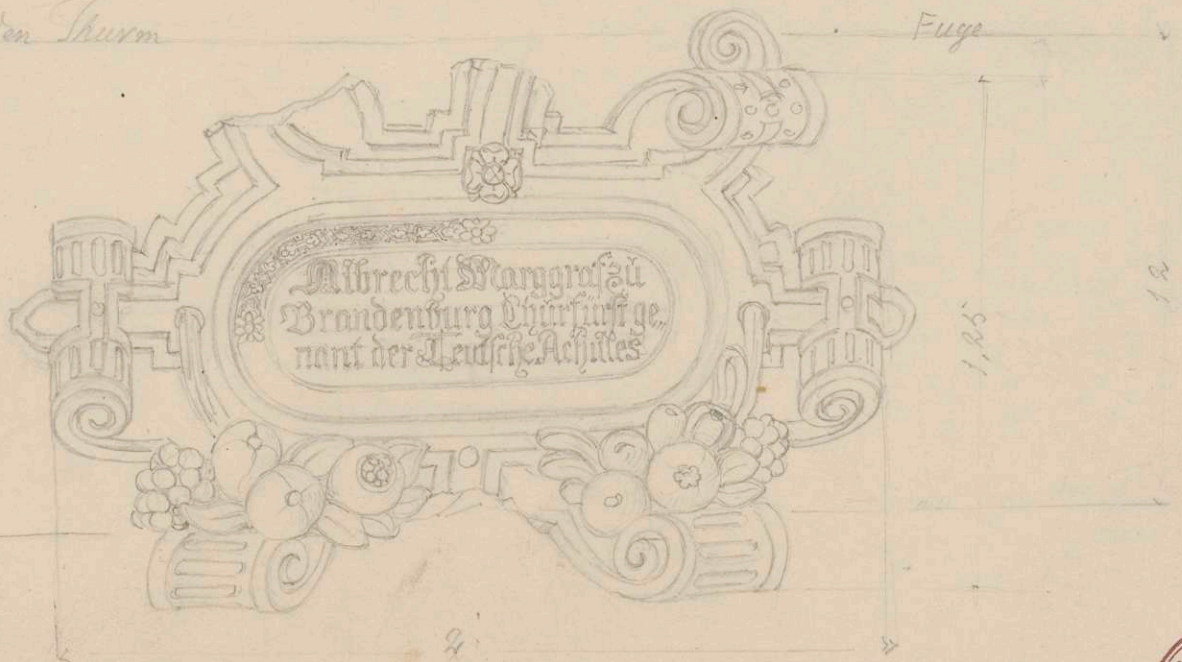 den Thurm
Fuge
Albrecht Marggraf zu
Brandenburg Churfürst ge-
nant der Teutsche Achilles
1,25
1,2
2